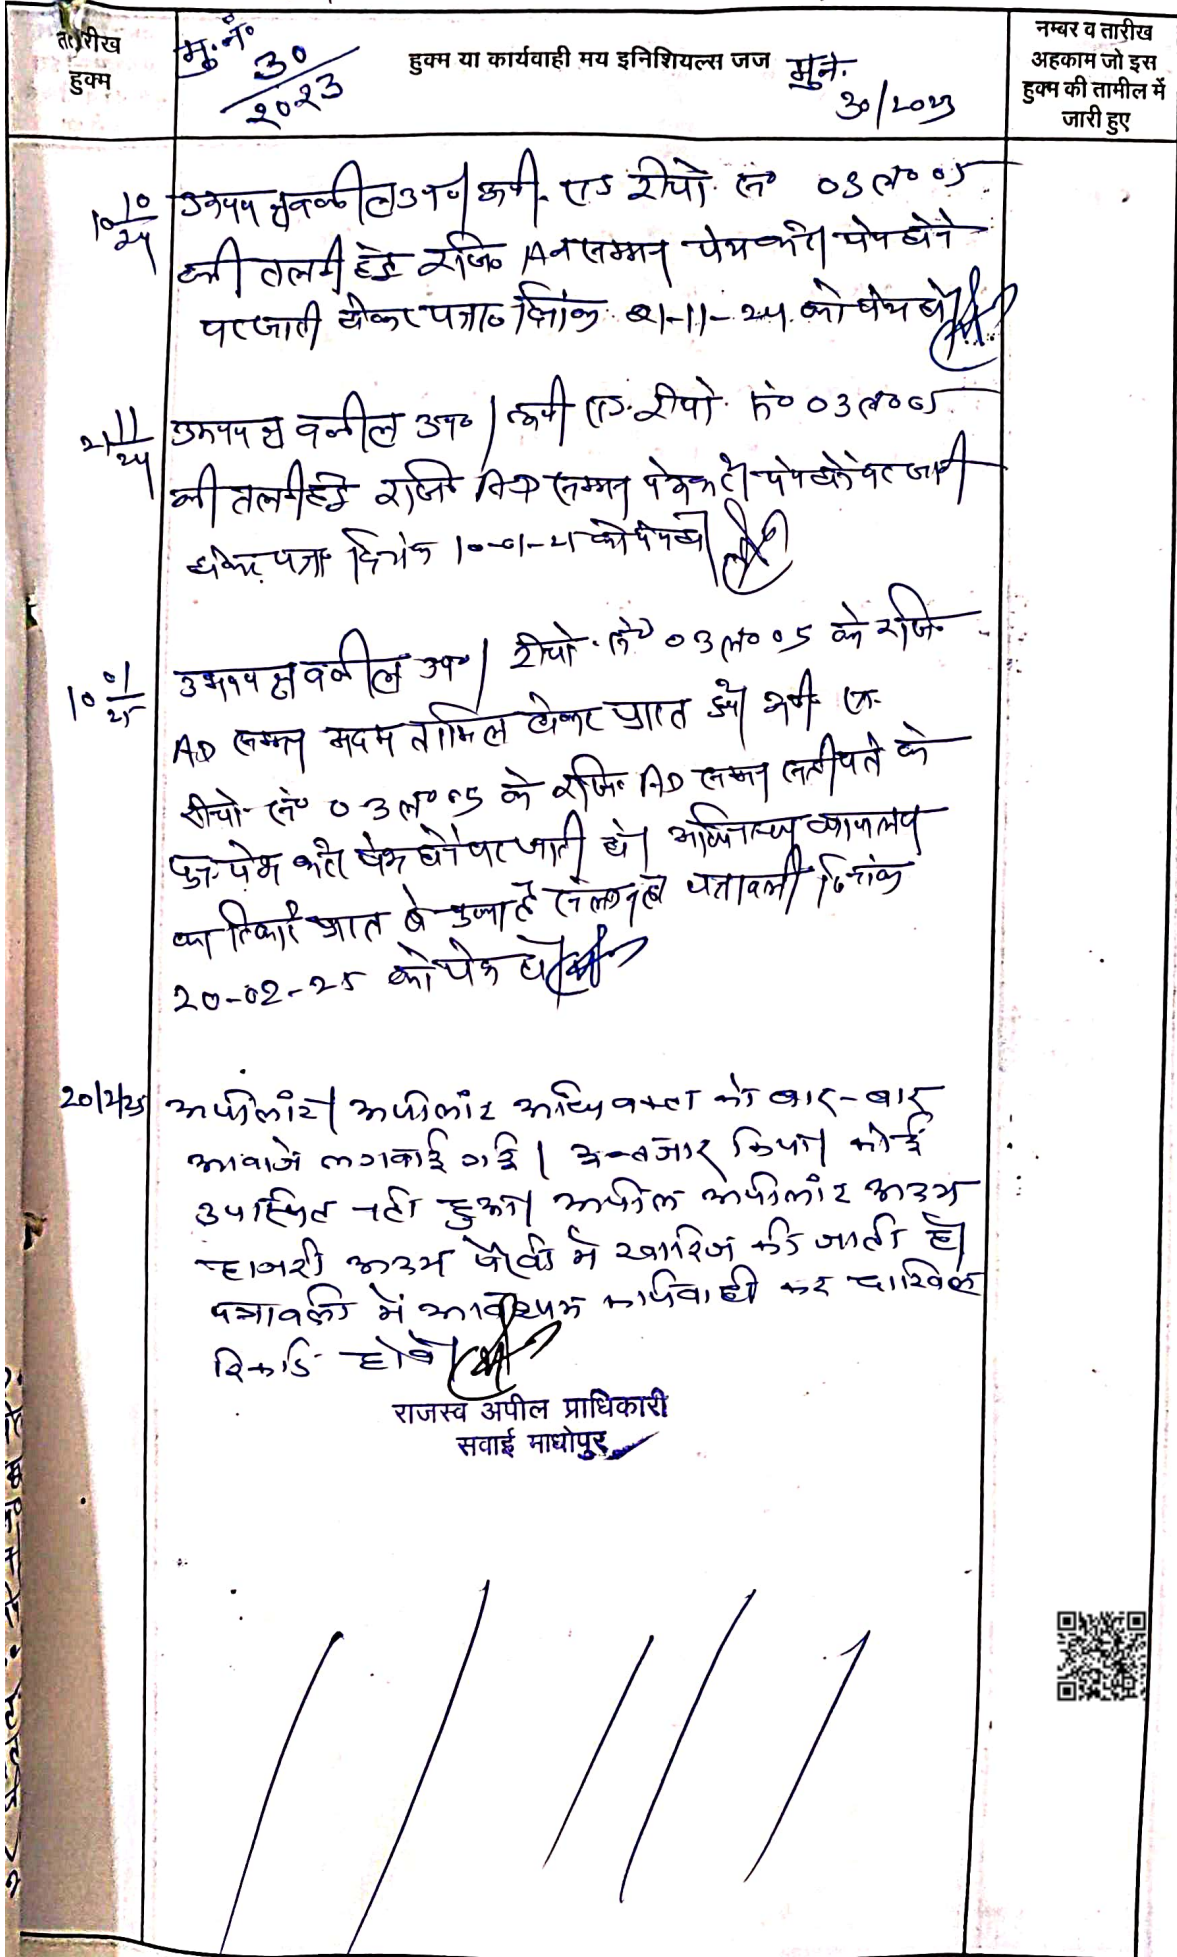 तारीख
हुक्म
मु. नं.
30
2023
हुक्म या कार्यवाही मय इनिशियल्स जज
मु.न.
30/2023
नम्बर व तारीख
अहकाम जो इस
हुक्म की तामील में
जारी हुए
10 10/24
उभयपक्ष वकील उप०। रीपो. नं० 03 ल० 05
की तलबी हेतु रजि० AD सम्मन पेश करे। पेश होने
पर जारी होकर पत्रा० दिनांक 21-11-24 को पेश हो।
21 11/24
उभयपक्ष वकील उप०। रीपो. नं० 03 ल० 05
की तलबी हेतु रजि० AD सम्मन पेश करे। पेश होने पर जारी
होकर पत्रा० दिनांक 10-01-25 को पेश हो।
10 01/25
उभयपक्ष वकील उप०। रीपो. नं० 03 ल० 05 के रजि०
AD सम्मन अदम तामिल होकर प्राप्त हुये।
रीपो. नं० 03 ल० 05 के रजि० AD सम्मन सही पते के
पुनः पेश करे। पेश होने पर जारी हो।
का रिकार्ड प्राप्त हो चुका है संलग्न हो पत्रावली दिनांक
20-02-25 को पेश हो।
20/2/25
अपीलांट। अपीलांट अधिवक्ता को बार-बार
आवाजे लगवाई गई। इन्तजार किया। कोई
उपस्थित नही हुआ। अपील अपीलांट अदम
हाजरी अदम पैरवी मे खारिज की जाती है।
पत्रावली में आवश्यक कार्यवाही कर दाखिल
रिकार्ड होवे।
राजस्व अपील प्राधिकारी
सवाई माधोपुर